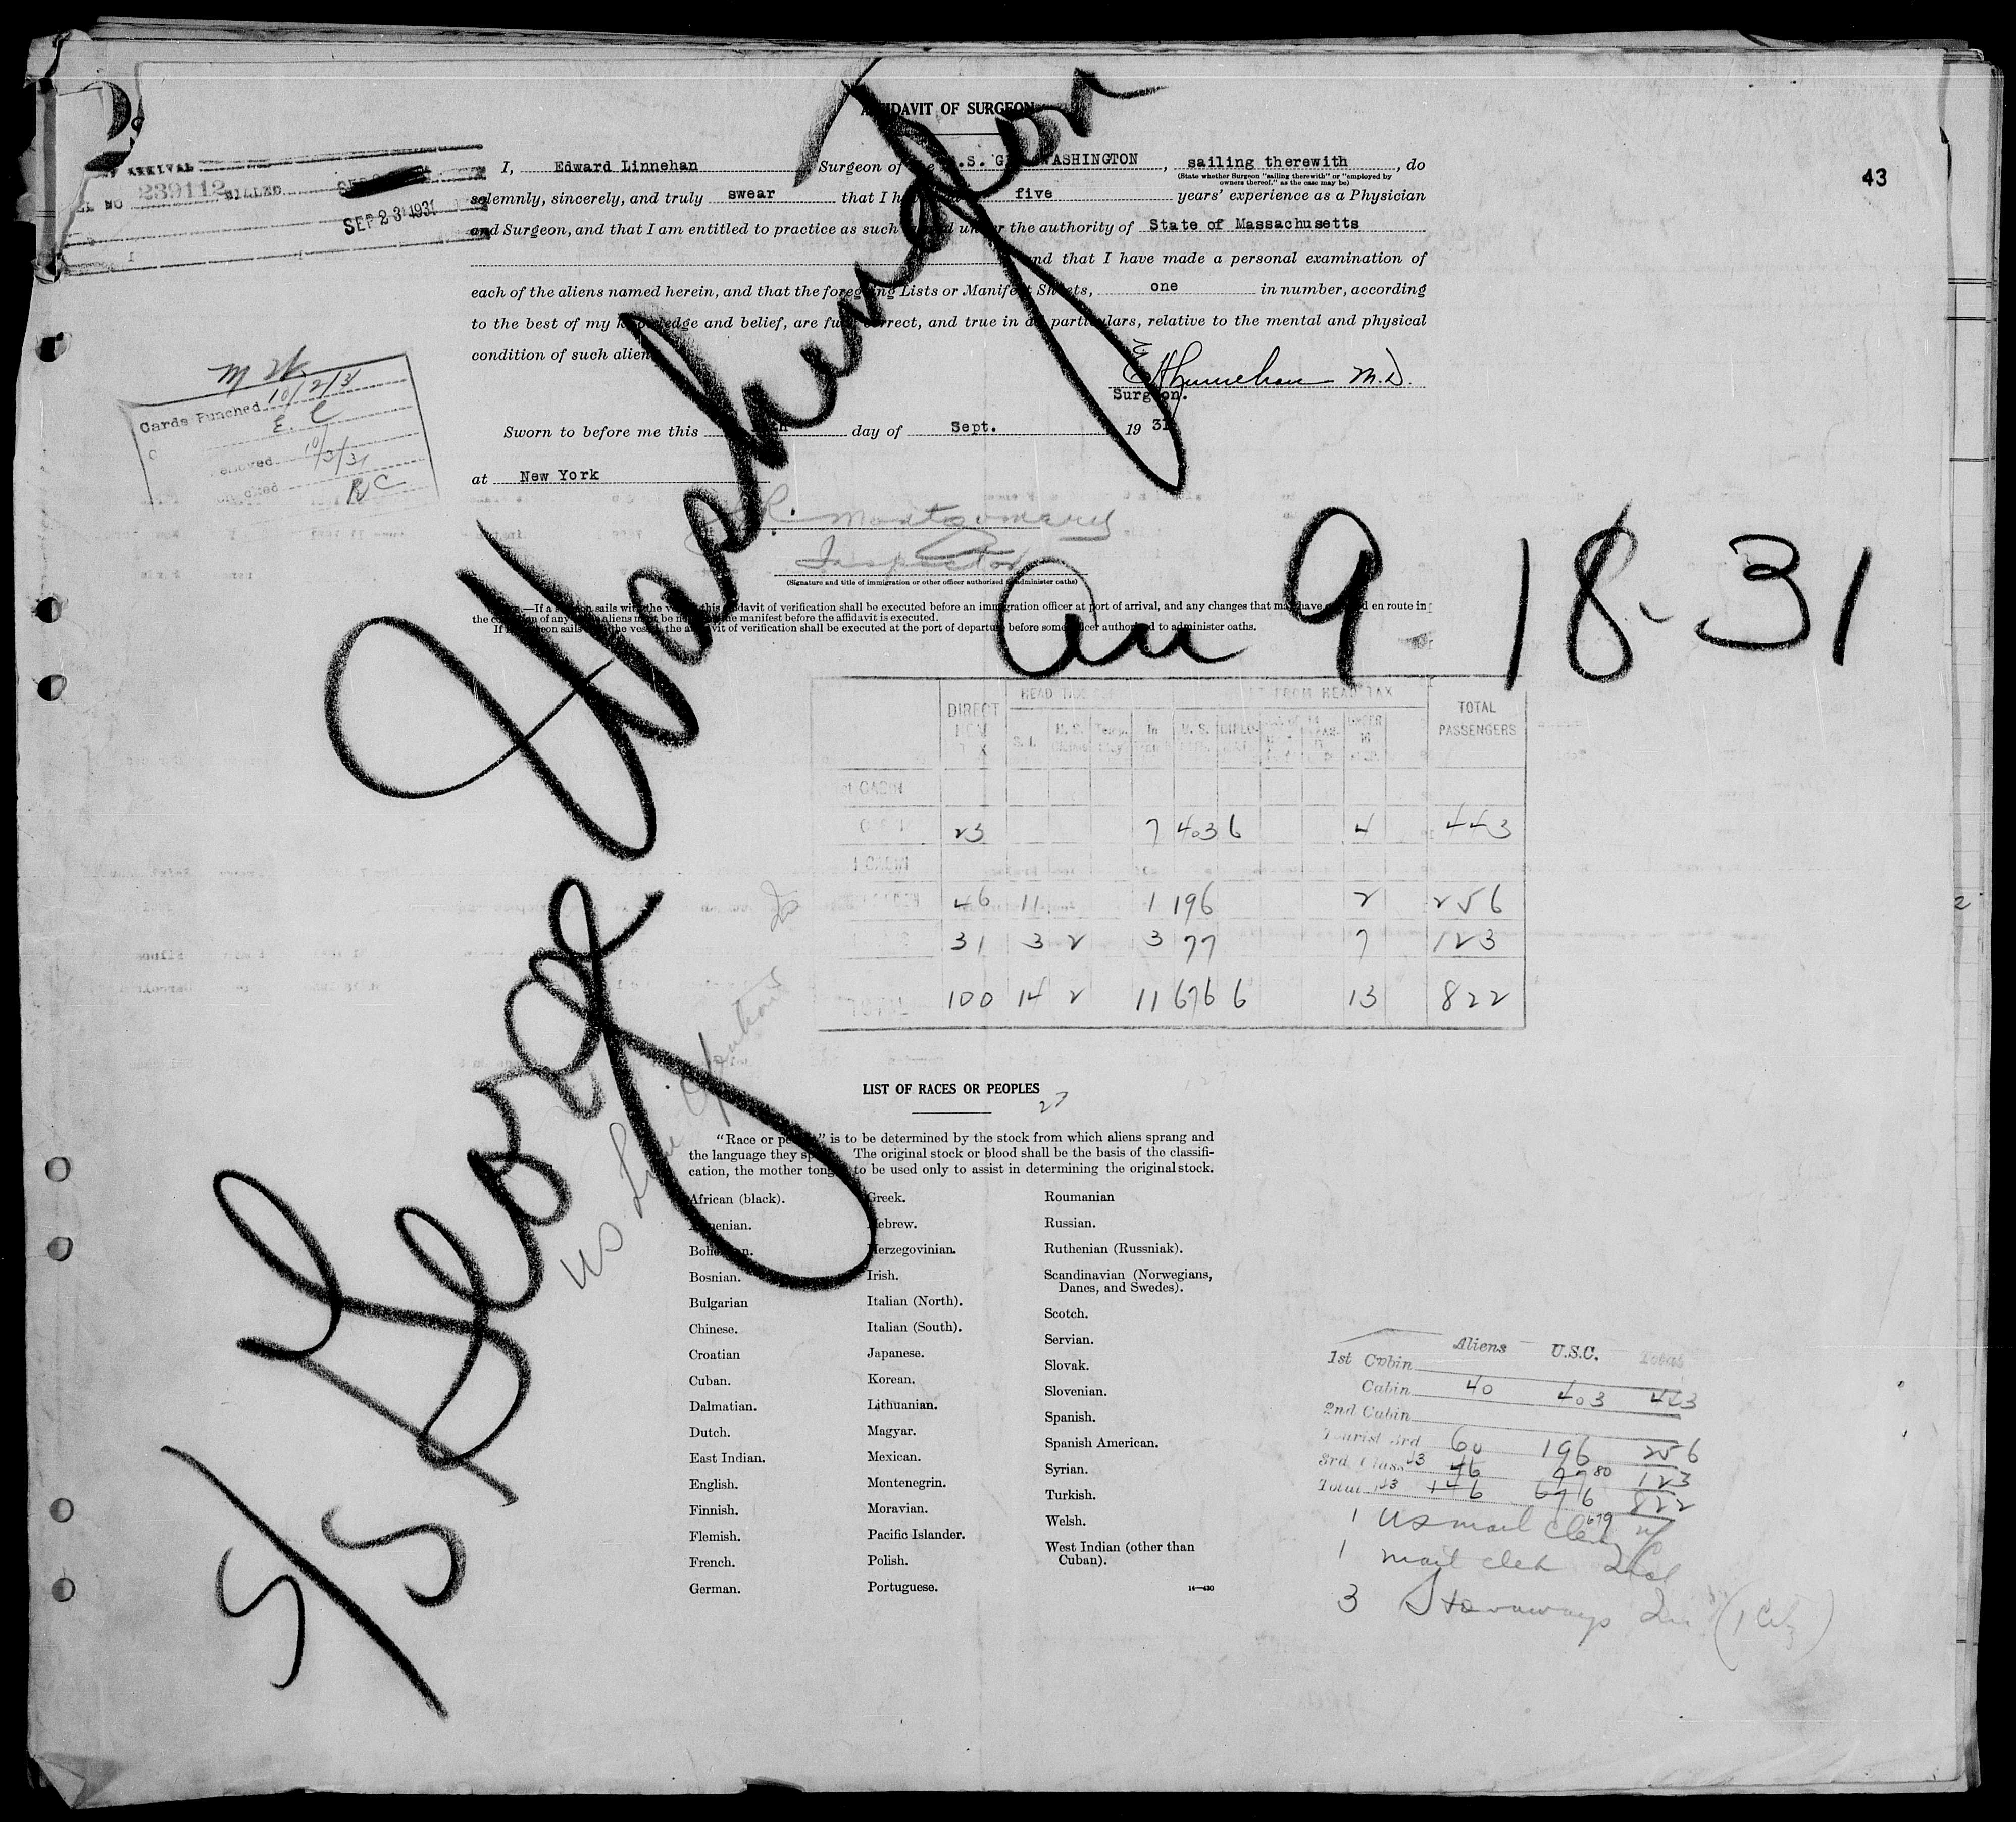 AFFIDAVIT OF SURGEON
43
ARRIVAL
NO 239112 BILLED
SEP 23 1931
I, Edward Linnehan Surgeon of the S.S. G WASHINGTON, sailing therewith, do
(State whether Surgeon "sailing therewith" or "employed by
owners thereof," as the case may be)
solemnly, sincerely, and truly swear that I have five years' experience as a Physician
and Surgeon, and that I am entitled to practice as such under the authority of State of Massachusetts
and that I have made a personal examination of
each of the aliens named herein, and that the foregoing Lists or Manifest Sheets, one in number, according
to the best of my knowledge and belief, are full, correct, and true in all particulars, relative to the mental and physical
condition of such aliens
E H Linnehan M.D.
Surgeon.
Cards Punched 10/2/31
E. C
10/3/31
RC
Sworn to before me this th day of Sept. 1931
at New York
Montgomery
Inspector
(Signature and title of immigration or other officer authorized to administer oaths)
NOTE.—If a surgeon sails with the vessel, this affidavit of verification shall be executed before an immigration officer at port of arrival, and any changes that may have occurred en route in
the condition of any such aliens must be noted on the manifest before the affidavit is executed.
If no surgeon sails with the vessel, the affidavit of verification shall be executed at the port of departure before some officer authorized to administer oaths.
S/S George Washington
Arr 9 18-31
DIRECT HEAD TAX FROM HEAD TAX TOTAL PASSENGERS
S. I. U. S. In U. S. UNDER 16
1st CABIN
23 7 403 6 4 443
CABIN
46 11 1 196 2 256
31 3 2 3 77 7 123
TOTAL 100 14 2 11 676 6 13 822
US Line
LIST OF RACES OR PEOPLES
27
"Race or people" is to be determined by the stock from which aliens sprang and
the language they speak. The original stock or blood shall be the basis of the classifi-
cation, the mother tongue to be used only to assist in determining the original stock.
African (black).
Armenian.
Bohemian.
Bosnian.
Bulgarian
Chinese.
Croatian
Cuban.
Dalmatian.
Dutch.
East Indian.
English.
Finnish.
Flemish.
French.
German.
Greek.
Hebrew.
Herzegovinian.
Irish.
Italian (North).
Italian (South).
Japanese.
Korean.
Lithuanian.
Magyar.
Mexican.
Montenegrin.
Moravian.
Pacific Islander.
Polish.
Portuguese.
Roumanian
Russian.
Ruthenian (Russniak).
Scandinavian (Norwegians,
Danes, and Swedes).
Scotch.
Servian.
Slovak.
Slovenian.
Spanish.
Spanish American.
Syrian.
Turkish.
Welsh.
West Indian (other than
Cuban).
14—430
Aliens U.S.C. Total
1st Cabin
Cabin 40 403 443
2nd Cabin
Tourist 3rd 60 196 256
3rd Class 43 46 77 80 123
Total 143 146 676 822
679
1 US mail clerk
1 mail clerk
3 Stowaways